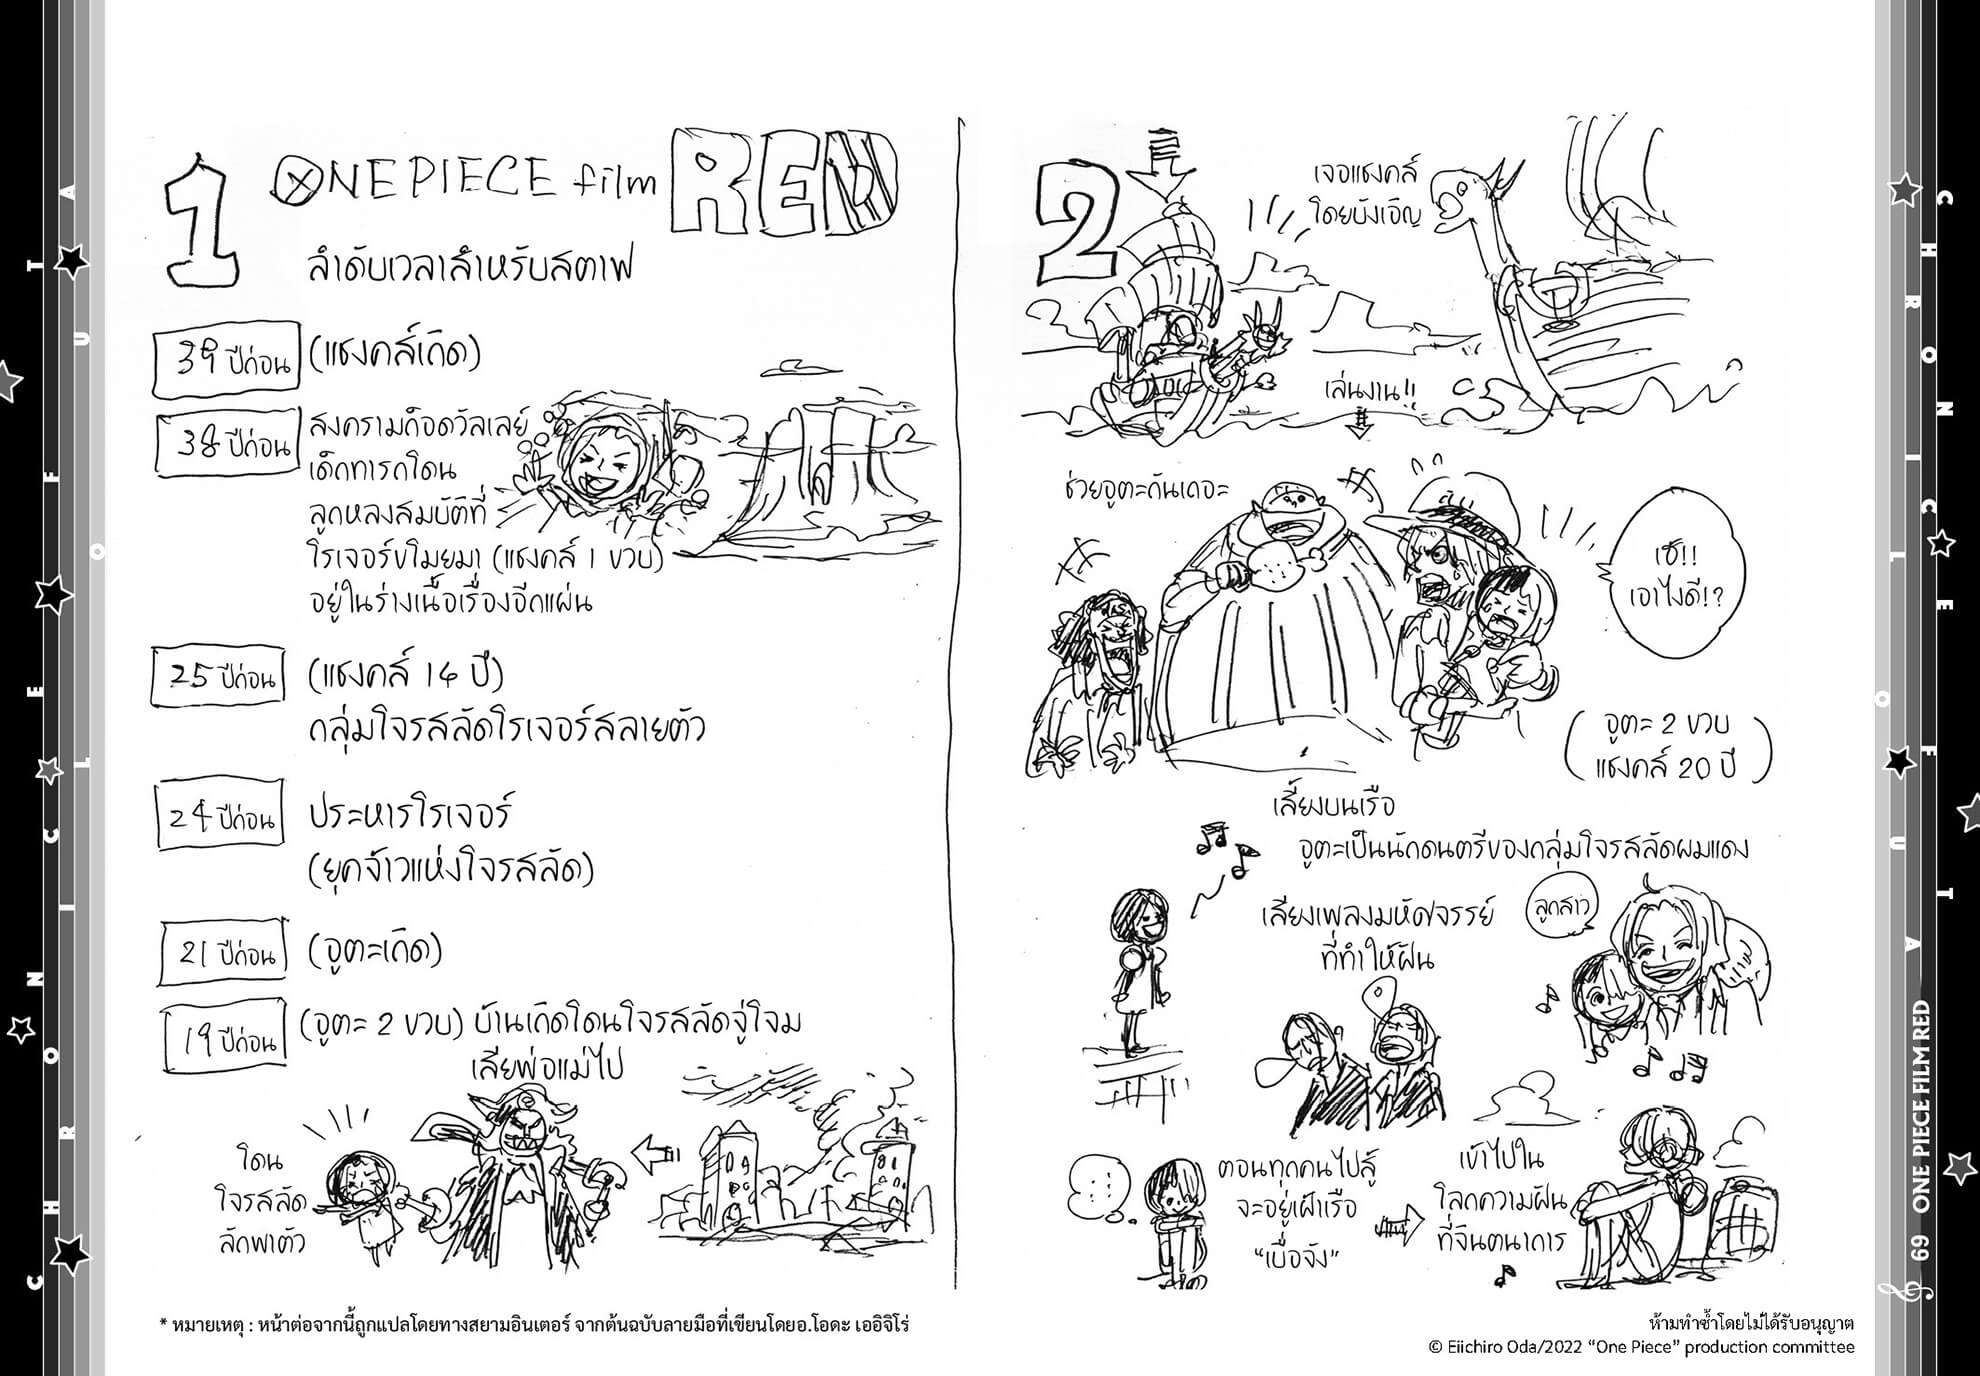 1
ONE PIECE film RED
ลำดับเวลาสำหรับสตาฟ
39 ปีก่อน
(แชงคส์เกิด)
38 ปีก่อน
สงครามก็อดวัลเลย์
เด็กทารกโดน
ลูกหลงสมบัติที่
โรเจอร์ขโมยมา (แชงคส์ 1 ขวบ)
อยู่ในร่างเนื้อเรื่องอีกแผ่น
25 ปีก่อน
(แชงคส์ 14 ปี)
กลุ่มโจรสลัดโรเจอร์สลายตัว
24 ปีก่อน
ประหารโรเจอร์
(ยุคจ้าวแห่งโจรสลัด)
21 ปีก่อน
(อูตะเกิด)
19 ปีก่อน
(อูตะ 2 ขวบ) บ้านเกิดโดนโจรสลัดจู่โจม
เสียพ่อแม่ไป
โดน
โจรสลัด
ลักพาตัว
2
เจอแชงคส์
โดยบังเอิญ
เล่นงาน!!
ช่วยอูตะกันเถอะ
เฮ้!!
เอาไงดี!?
(อูตะ 2 ขวบ
แชงคส์ 20 ปี)
เลี้ยงบนเรือ
อูตะเป็นนักดนตรีของกลุ่มโจรสลัดผมแดง
เสียงเพลงมหัศจรรย์
ที่ทำให้ฝัน
ลูกสาว
ตอนทุกคนไปสู้
จะอยู่เฝ้าเรือ
“เบื่อจัง”
เข้าไปใน
โลกความฝัน
ที่จินตนาการ
* หมายเหตุ : หน้าต่อจากนี้ถูกแปลโดยทางสยามอินเตอร์ จากต้นฉบับลายมือที่เขียนโดยอ.โอดะ เออิจิโร่
ห้ามทำซ้ำโดยไม่ได้รับอนุญาต
© Eiichiro Oda/2022 “One Piece” production committee
CHRONICLE OF UTA
CHRONICLE OF UTA
69 ONE PIECE FILM RED